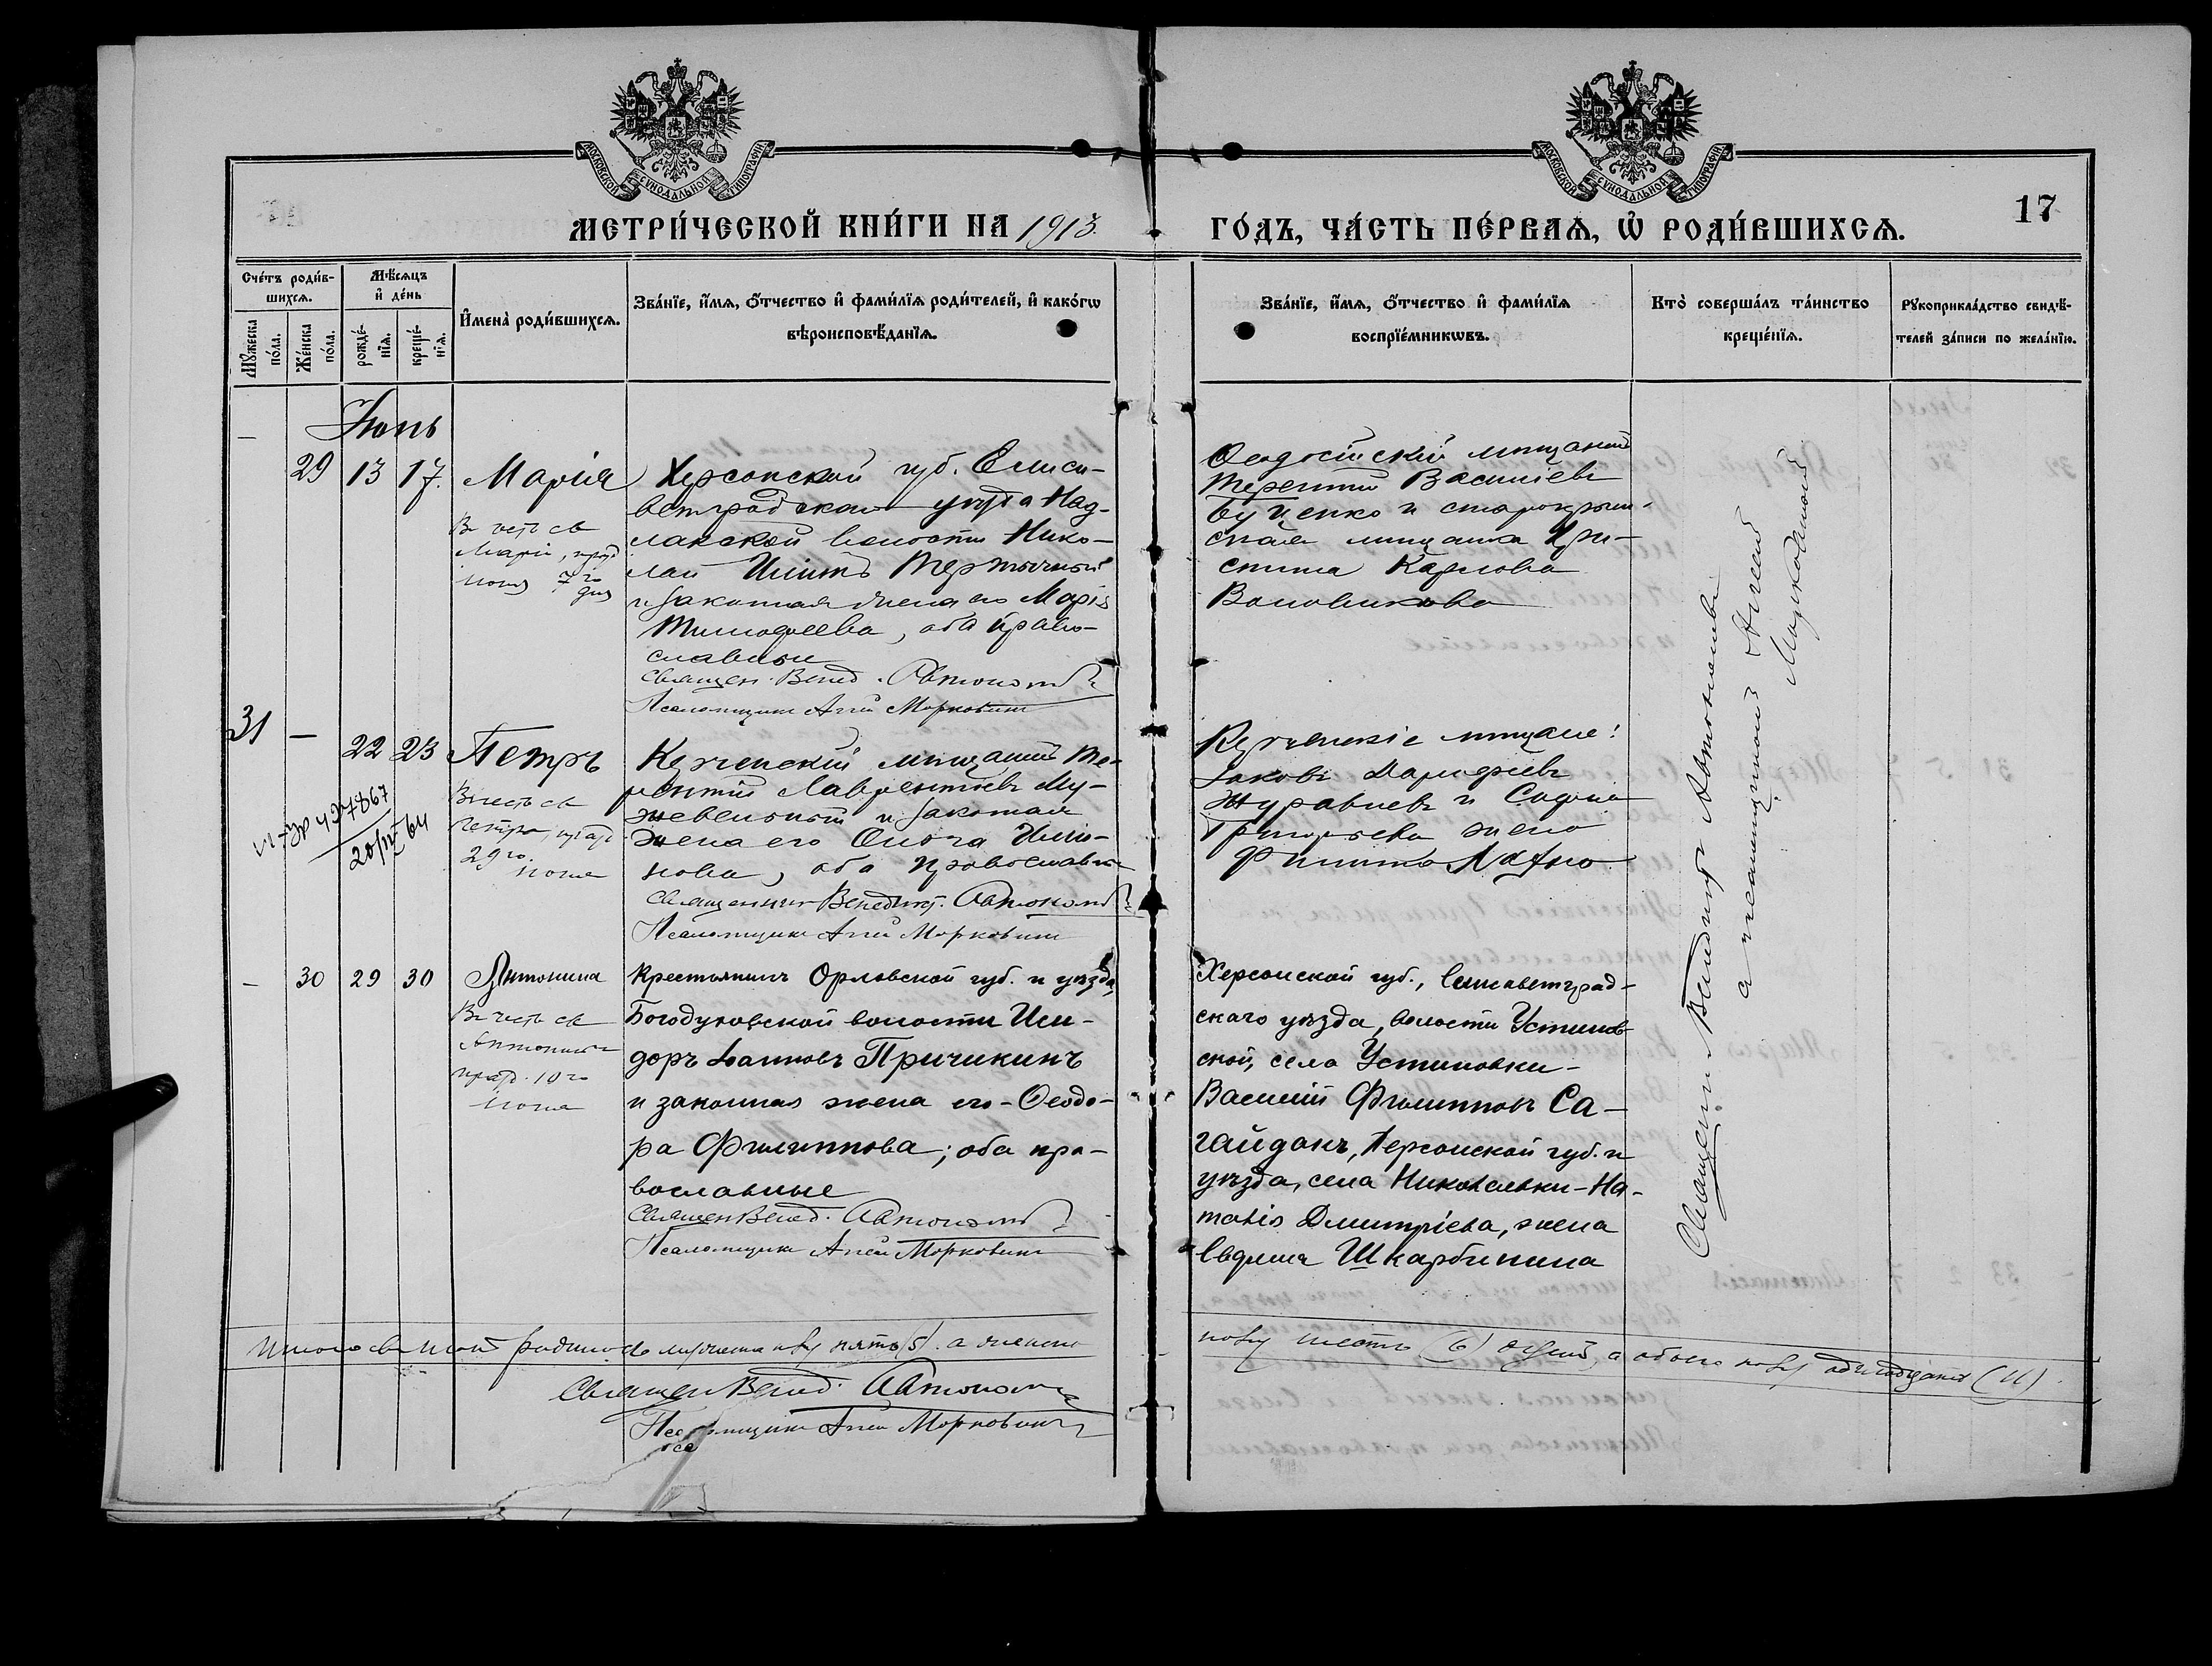 МОСКОВСКОЙ СѴНОДАЛЬНОЙ ТИПОГРАФІИ
МОСКОВСКОЙ СѴНОДАЛЬНОЙ ТИПОГРАФІИ
МЕТРИ́ЧЕСКОЙ КНИ́ГИ НА 1913
ГО́ДЪ, ЧА́СТЬ ПЕ́РВАѦ, Ѡ҆ РОДИ́ВШИХСѦ.
17
Сче́тъ роди́в-
шихсѧ.
Мꙋ́жеска
по́ла.
Же́нска
по́ла.
Мѣ́сѧцъ
и҆ де́нь
рожде́-
нїѧ.
креще́-
нїѧ.
И҆мена̀ роди́вшихсѧ.
Зва́нїе, и҆́мѧ, ѻ҆́тчество и҆ фами́лїѧ роди́телей, и҆ како́гѡ
вѣроисповѣ́данїѧ.
Зва́нїе, и҆́мѧ, ѻ҆́тчество и҆ фами́лїѧ
воспрїе́мникѡвъ.
Кто̀ соверша́лъ та́инство
креще́нїѧ.
Рꙋкоприкла́дство свидѣ́-
телей за́писи по жела́нїю.
Іюнь
—
29
13
17.
Марія
В честь св
Маріи, празд
іюня 7го
дня
Херсонской губ. Елиса-
ветградскаго уѣзда Над-
лакской волости Нико-
лай Иліинъ Тертычный
и законная жена его Марія
Тимофеева, оба право-
славные
Священ. Венед. Автономовъ
Псаломщикъ Агѣй Морковинъ
Ѳеодосійскій мѣщанинъ
Терентій Василіевъ
Буценко и старокрым-
ская мѣщанка Хри-
стина Карпова
31
—
22
23
Петръ
В честь св
Петра, празд
29го
іюня
20/IV 64
Керченскій мѣщанинъ Те-
рентій Лаврентіевъ Му-
жевельный и законная
жена его Ольга Илiи-
нова, оба православные
Священникъ Венедикт. Автономовъ
Псаломщикъ Агѣй Морковинъ
Керченскіе мѣщане:
Іаковъ
Журавлевъ и Софья
Григорьева жена
Филиппа Махно
—
30
29
30
Антонина
В честь св
Антонины
празд. 10го
іюня
Крестьянинъ Орловской губ. и уѣзда,
Богодуховской волости Иси-
доръ Іоанновъ Причикинъ
и законная жена его - Ѳеодо-
ра Филиппова; оба пра-
вославные
Священ Венед. Автономовъ
Псаломщикъ Агѣй Морковинъ
Херсонской губ., Елисаветград-
скаго уѣзда, волости Устинов-
ской, села Устиновки -
Василій Филипповъ Са-
гайдакъ, Херсонской губ. и
уѣзда, села Николаевки - На-
талія Димитріева, жена
Евфима Шкарбинина
Священникъ Венедиктъ Автономовъ
а псаломщикомъ Агѣемъ
Морковинымъ
Итого въ іюнѣ родилось мужеска полу пять (5). а женска
полу шесть (6) душъ, а обоего полу одиннадцать (11).
Священ Венед. Автономовъ
Псаломщикъ Агѣй Морковинъ